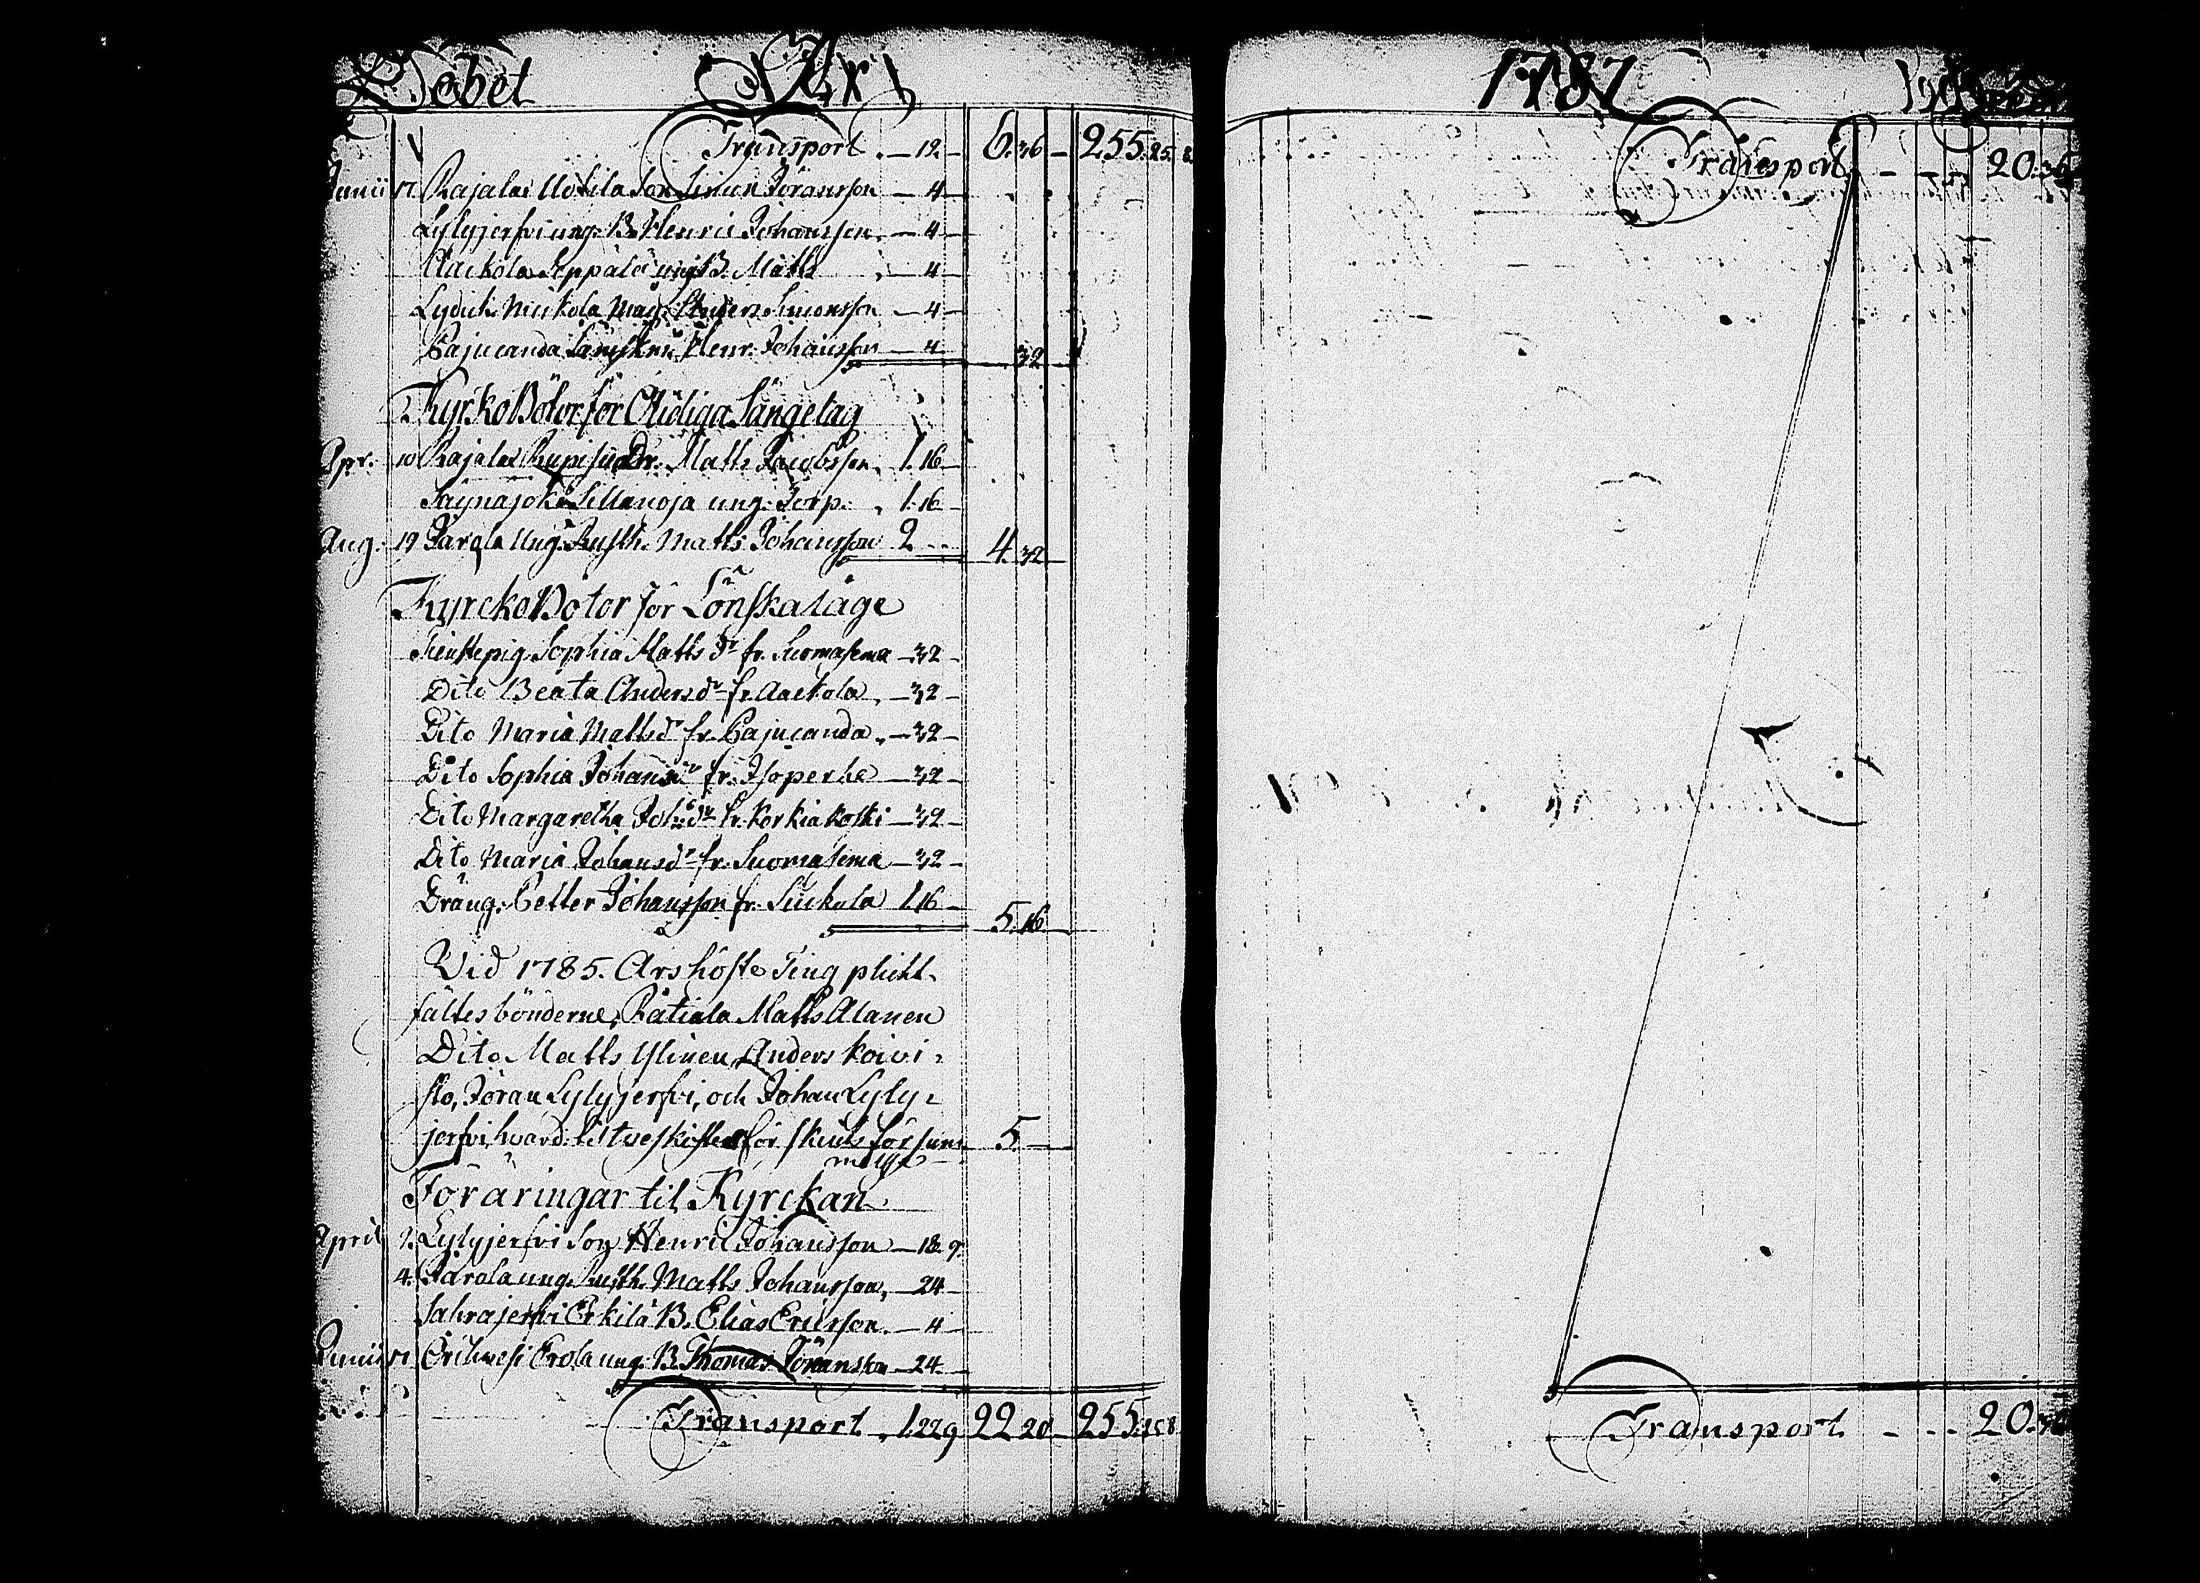 Debet
Transport. — 12. — 6. 36 — 255. 25. 8
Junii 17. Rajalax Uotila Son Simon Jöransson — 4 —
Lylyjerfvi ung. B. Henric Johansson. — 4 —
Aackola Seppälä ung B. Matts — 4 —
Lydick Muckola Anders Simonsson — 4 —
Pajucanda Henr. Johansson — 4 — 32
KyrkoBötor för Otidiga Sängelag
Apr. 10 Rajalax Matts Jacobsson. 1. 16 —
Saynajoki Sillanoja ung. Torp. 1. 16 —
Aug. 19 Jarola Ung. Rusth. Matts Johansson 2 — 4. 32
KyrckoBötor för Lönskaläge
Tienstepig. Sophia Matts dr fr. Suomasema — 32 —
Dito Beata Anders dr fr. Aackola — 32 —
Dito Maria Matts dr fr. Pajucanda — 32 —
Dito Sophia Johans dr fr. Isoperhe — 32 —
Dito Margaretha Joh: dr fr. Korkiakoski — 32 —
Dito Maria Johans dr fr. Suomasema — 32 —
Dräng. Petter Johansson fr. Siukola 1. 16 — 5. 16
Wid 1785. Års höste Ting plickt
fältes bönderne, Rätiala Matts Alanen
Dito Matts Ylinen, Anders Koivi-
sto, Jöran Lylyjerfvi, och Johan Lyly-
jerfvi, hvard. til för skuts försum- 5. —
melse
Föräringar til Kyrckan
April 1. Lylyjerfvi Son Henric Johansson — 18. 9.
4. Jarola ung. Rusth. Matts Johansson, — 24 —
Sahrajerfvi Erkilä B. Elias Ericsson. — 4 —
Junii 17 Orihvesi Erola ung. B. Thomas Jöransson — 24 —
Transport 1. 22 9 22 20 — 255. 25 8
1787
Transport — 20. 36
Transport — 20. 36